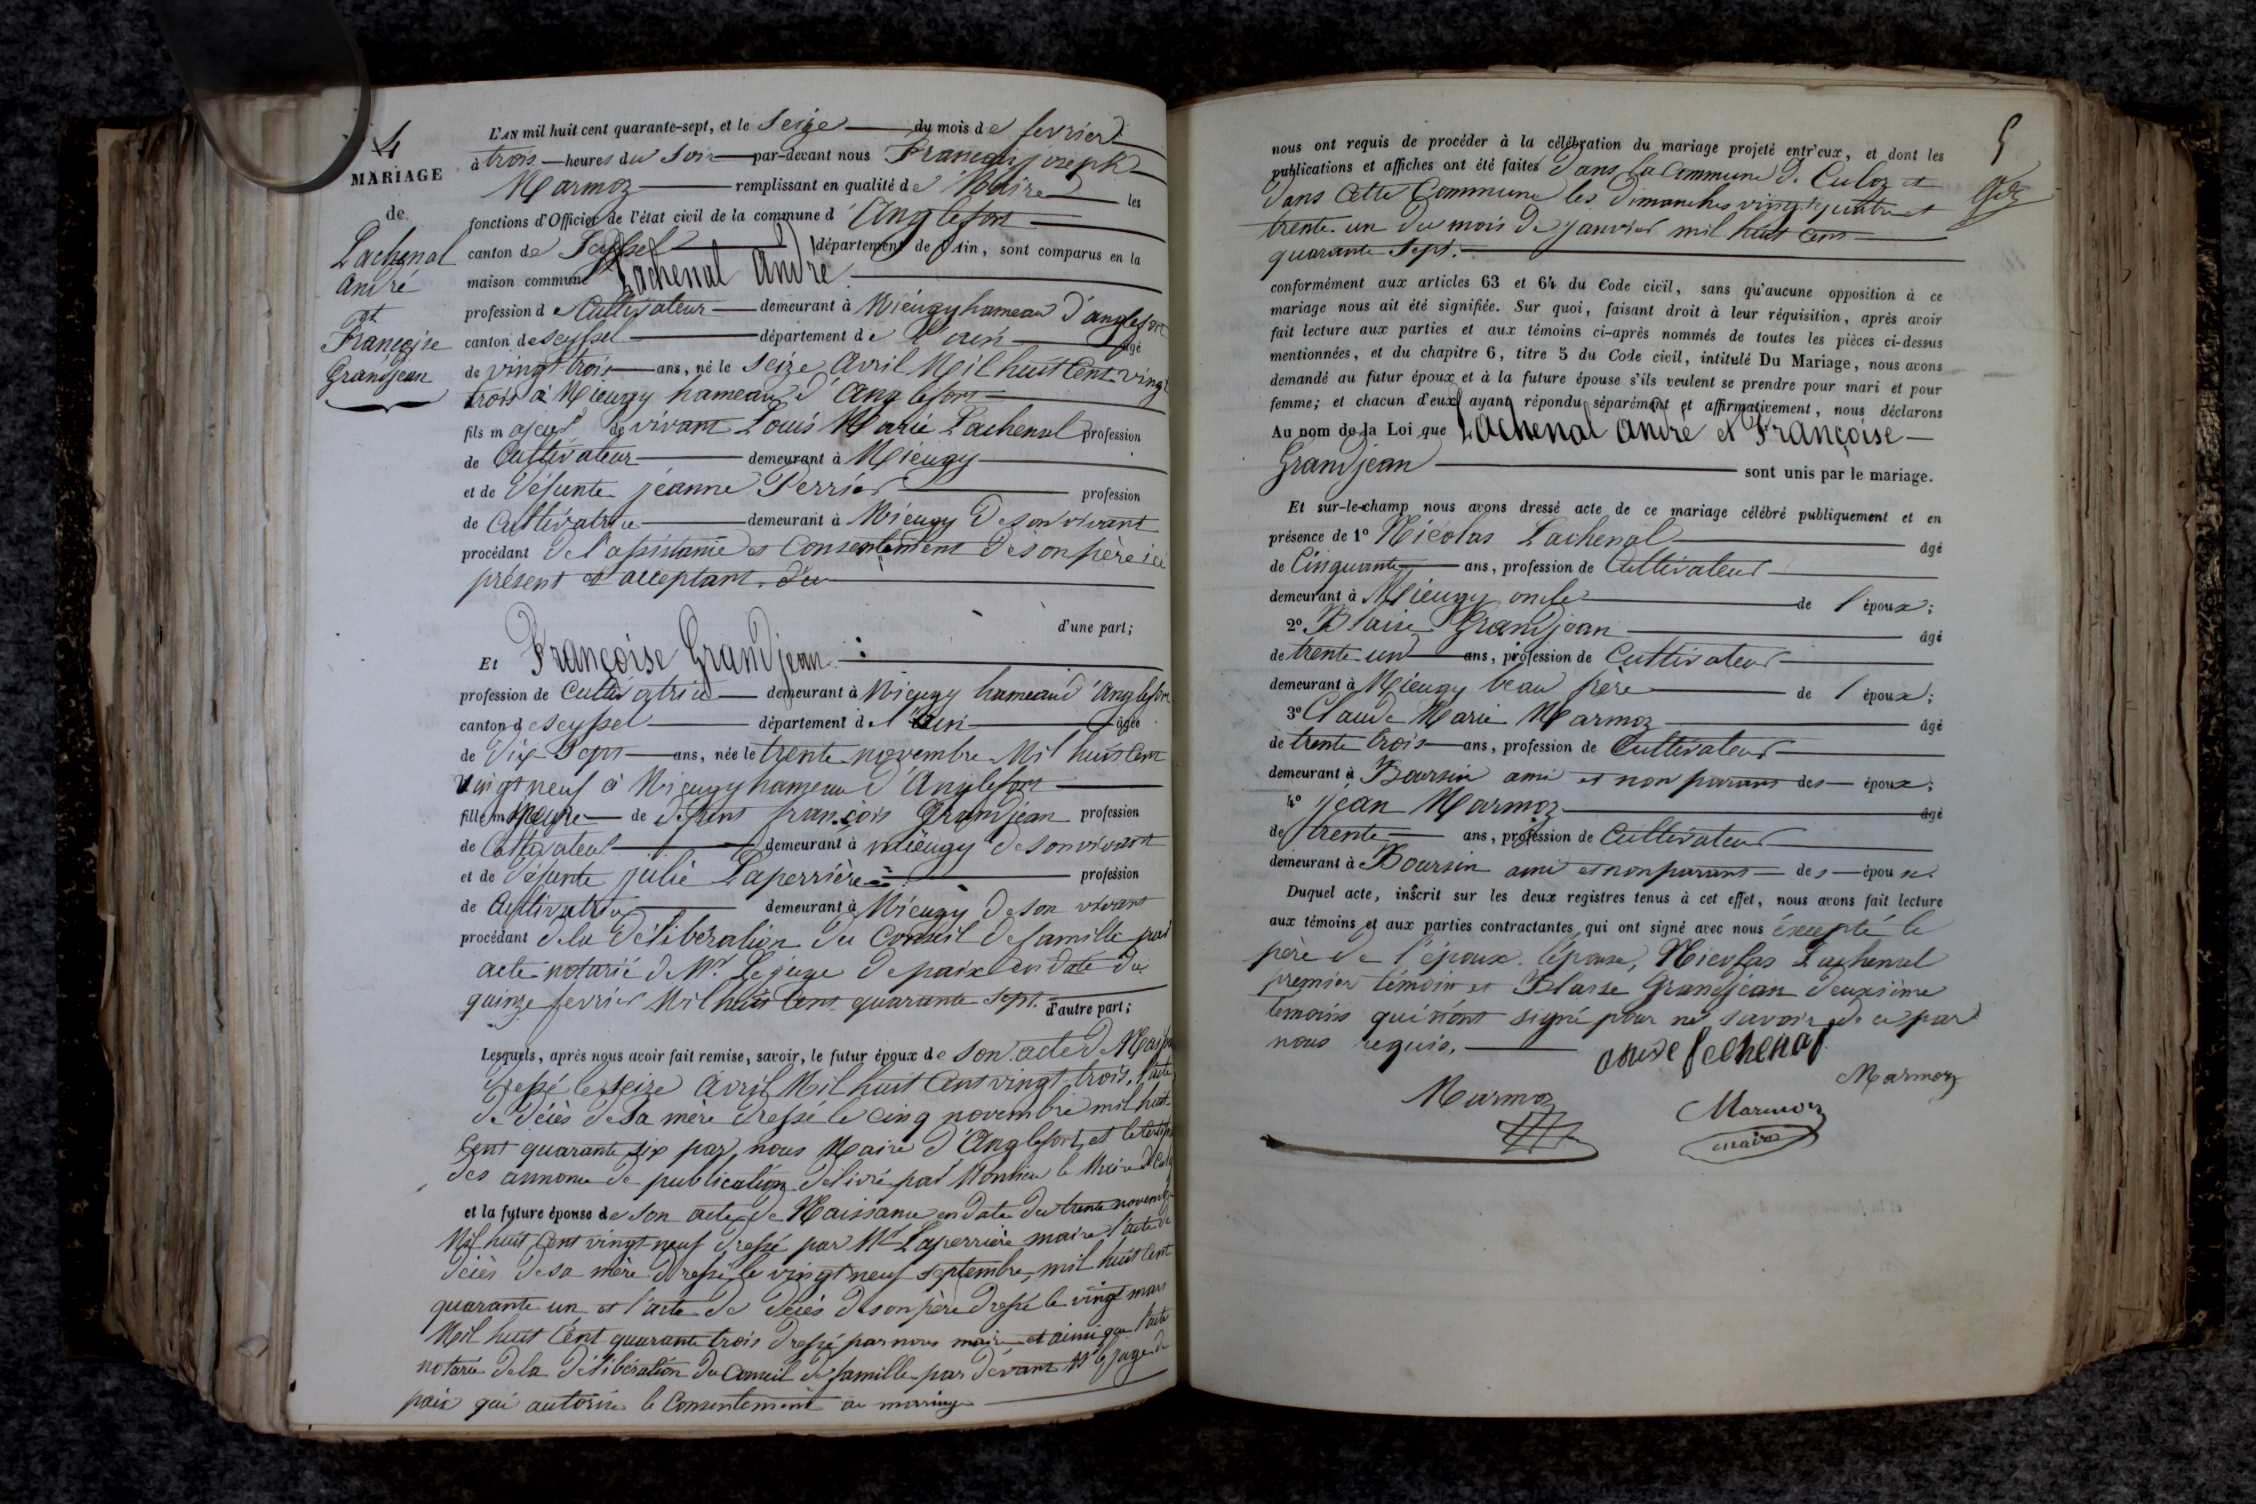 4
MARIAGE
de
Lachenal
André
et
Françoise
Grandjean
L'AN mil huit cent quarante-sept, et le seize du mois de fevrier
à trois heures du soir par-devant nous François joseph
Marmoz remplissant en qualité de Maire les
fonctions d'Officier de l'état civil de la commune d'Anglefort
canton de Seyssel département de l'Ain, sont comparus en la
maison commune Lachenal André
profession de Cultivateur demeurant à Mieugy hameau d'anglefort
canton de seyssel département de l'ain âgé
de vingt trois ans, né le seize Avril Mil huit Cent vingt
trois à Mieugy hameau d'Anglefort
fils majeur de vivant Louis Marie Lachenal profession
de Cultivateur demeurant à Mieugy
et de défunte jeanne Perrier profession
de Cultivatrice demeurant à Mieugy de son vivant
procédant de l'assistance et Consentement de son père ici
présent et acceptant.
d'une part;
Et Françoise Grandjean
profession de Cultivatrice demeurant à Mieugy hameau d'Anglefort
canton de seyssel département de l'ain âgée
de dix sept ans, née le trente novembre Mil huit Cent
vingt neuf à Mieugy hameau d'Anglefort
fille mineure de défunt françois Grandjean profession
de Cultivateur demeurant à mieugy de son vivant
et de défunte julie Laperrière profession
de Cultivatrice demeurant à Mieugy de son vivant
procédant de la délibération du Conseil de famille par
acte notarié de Mr. Le juge de paix en date du
quinze fevrier Mil huit Cent quarante sept. d'autre part;
Lesquels, après nous avoir fait remise, savoir, le futur époux de son acte de
dressé le seize Avril Mil huit Cent vingt trois, l'acte
de décès de sa mère dressé le cinq novembre mil huit
Cent quarante six par nous Maire d'Anglefort, et le
des annonce de publication delivré par Monsieur le Maire de
et la future épouse de son acte de Naissance en date du trente novembre
Mil huit Cent vingt neuf dressé par Mr Laperrière maire l'acte de
décès de sa mère dressé le vingt neuf septembre, mil huit Cent
quarante un et l'acte de décès de son père dressé le vingt mars
Mil huit Cent quarante trois dressé par nous maire et ainsi que l'acte
notarié de la délibération du Conseil de famille par devant Mr le juge de
paix qui autorise le Consentement au mariage
5
nous ont requis de procéder à la célébration du mariage projeté entr'eux, et dont les
publications et affiches ont été faites dans la Commune de Culoz et
dans Cette Commune les dimanches vingt quatre et
trente un du mois de janvier mil huit Cent
quarante Sept.
conformément aux articles 63 et 64 du Code civil, sans qu'aucune opposition à ce
mariage nous ait été signifiée. Sur quoi, faisant droit à leur réquisition, après avoir
fait lecture aux parties et aux témoins ci-après nommés de toutes les pièces ci-dessus
mentionnées, et du chapitre 6, titre 5 du Code civil, intitulé Du Mariage, nous avons
demandé au futur époux et à la future épouse s'ils veulent se prendre pour mari et pour
femme; et chacun d'eux ayant répondu séparément et affirmativement, nous déclarons
Au nom de la Loi que Lachenal André et Françoise
Grandjean sont unis par le mariage.
Et sur-le-champ nous avons dressé acte de ce mariage célébré publiquement et en
présence de 1° Nicolas Lachenal âgé
de Cinquante ans, profession de Cultivateur
demeurant à Mieugy oncle de l'époux;
2° Blaise Grandjean âgé
de trente un ans, profession de Cultivateur
demeurant à Mieugy beau frère de l'époux;
3° Claude Marie Marmoz âgé
de trente trois ans, profession de Cultivateur
demeurant à Boursin ami et non parans des époux;
4° jean Marmoz âgé
de trente ans, profession de Cultivateur
demeurant à Boursin ami et non parans des époux.
Duquel acte, inscrit sur les deux registres tenus à cet effet, nous avons fait lecture
aux témoins et aux parties contractantes qui ont signé avec nous éxcepté le
père de l'époux. l'épouse, Nicolas Lachenal
premier témoin et Blaise Grandjean deuxième
témoins qui n'ont signé pour ne savoir de ce par
nous requis.
Marmoz
Marmoz
Marmoz
maire